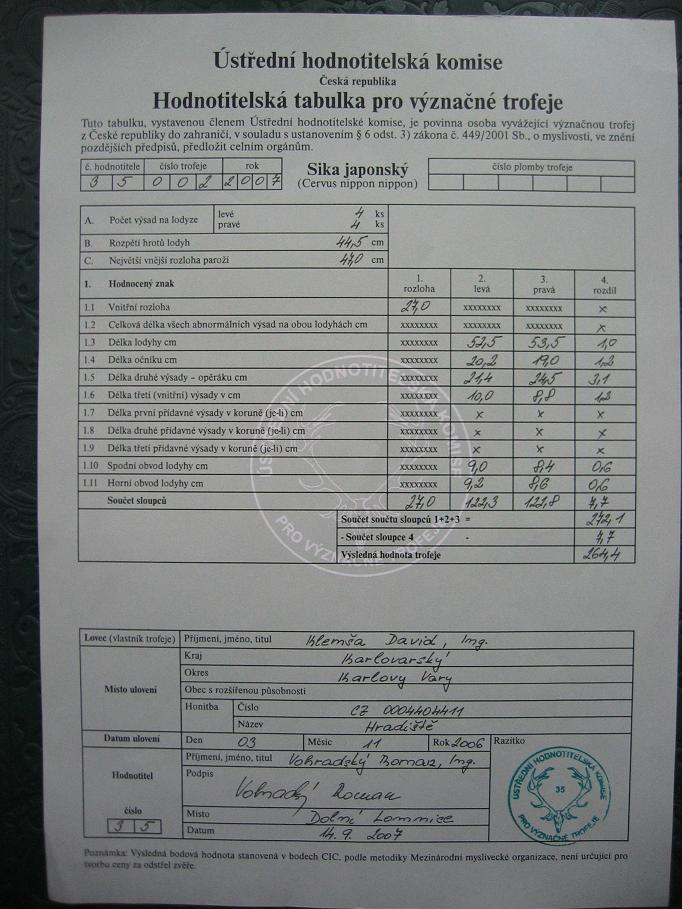 Ústřední hodnotitelská komise
Česká republika
Hodnotitelská tabulka pro význačné trofeje
Tuto tabulku, vystavenou členem Ústřední hodnotitelské komise, je povinna osoba vyvážející význačnou trofej
z České republiky do zahraničí, v souladu s ustanovením § 6 odst. 3) zákona č. 449/2001 Sb., o myslivosti, ve znění
pozdějších předpisů, předložit celním orgánům.
č. hodnotitele číslo trofeje rok
3 5 0 0 2 2 0 0 7
Sika japonský
(Cervus nippon nippon)
číslo plomby trofeje
A. Počet výsad na lodyze levé 4 ks
pravé 4 ks
B. Rozpětí hrotů lodyh 44,5 cm
C. Největší vnější rozloha paroží 47,0 cm
1. Hodnocený znak 1. rozloha 2. levá 3. pravá 4. rozdíl
1.1 Vnitřní rozloha 27,0 xxxxxxxx xxxxxxxx x
1.2 Celková délka všech abnormálních výsad na obou lodyhách cm xxxxxxxx xxxxxxxx xxxxxxxx x
1.3 Délka lodyhy cm xxxxxxxx 52,5 53,5 1,0
1.4 Délka očníku cm xxxxxxxx 20,2 19,0 1,2
1.5 Délka druhé výsady – opěráku cm xxxxxxxx 21,4 24,5 3,1
1.6 Délka třetí (vnitřní) výsady v cm xxxxxxxx 10,0 8,8 1,2
1.7 Délka první přídavné výsady v koruně (je-li) cm xxxxxxxx x x x
1.8 Délka druhé přídavné výsady v koruně (je-li) cm xxxxxxxx x x x
1.9 Délka třetí přídavné výsady v koruně (je-li) cm xxxxxxxx x x x
1.10 Spodní obvod lodyhy cm xxxxxxxx 9,0 8,4 0,6
1.11 Horní obvod lodyhy cm xxxxxxxx 9,2 8,6 0,6
Součet sloupců 27,0 122,3 122,8 7,7
Součet součtu sloupců 1+2+3 = 272,1
- Součet sloupce 4 - 7,7
Výsledná hodnota trofeje 264,4
ÚSTŘEDNÍ HODNOTITELSKÁ KOMISE
PRO VÝZNAČNÉ TROFEJE
Lovec (vlastník trofeje) Příjmení, jméno, titul Klemša David, Ing.
Místo ulovení
Kraj Karlovarský
Okres Karlovy Vary
Obec s rozšířenou působností
Honitba Číslo CZ 0004404411
Název Hradiště
Datum ulovení Den 03 Měsíc 11 Rok 2006 Razítko
Hodnotitel
číslo
3 5
Příjmení, jméno, titul Vohradský Roman, Ing.
Podpis Vohradský Roman
Místo Dolní Lomnice
Datum 14. 9. 2007
ÚSTŘEDNÍ HODNOTITELSKÁ KOMISE
35
PRO VÝZNAČNÉ TROFEJE
Poznámka: Výsledná bodová hodnota stanovená v bodech CIC, podle metodiky Mezinárodní myslivecké organizace, není určující pro
tvorbu ceny za odstřel zvěře.